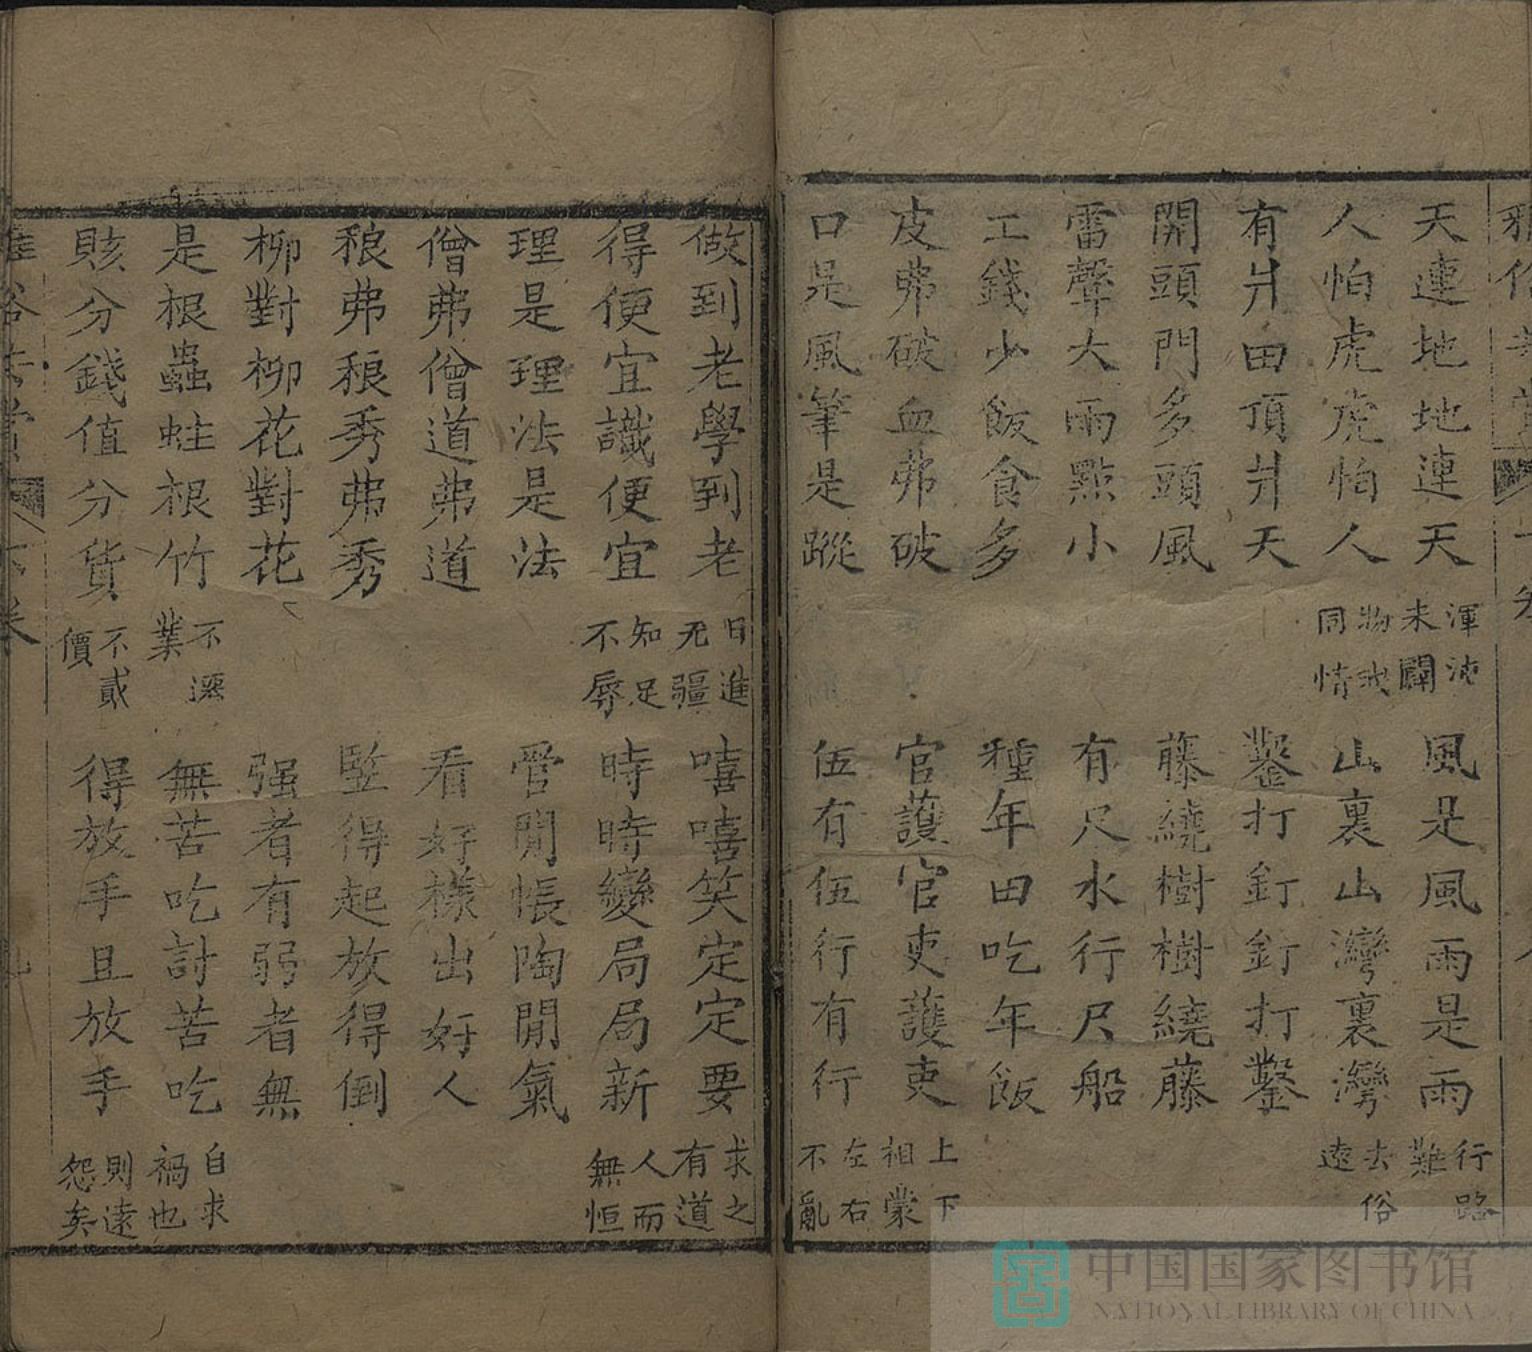 天連地地連天 渾沌未闢 風是風雨是雨 行路難
人怕虎虎怕人 物我同情 山裏山灣裏灣 去俗遠
有井田頂井天 鑿打釘釘打鑿
開頭門多頭風 藤繞樹樹繞藤
雷聲大雨點小 有尺水行尺船
工錢少飯食多 種年田吃年飯
皮弗破血弗破 官護官吏護吏 上下相蒙
口是風筆是蹤 伍有伍行有行 左右不亂
做到老學到老 日進无疆 嘻嘻笑定定要 求之有道
得便宜識便宜 知足不辱 時時變局局新 人而無恒
理是理法是法 管閒帳陶閒氣
僧弗僧道弗道 看好樣出好人
稂弗稂秀弗秀 豎得起放得倒
柳對柳花對花 强者有弱者無
是根蟲蛀根竹 不遷業 無苦吃討苦吃 自求禍也
賅分錢值分貨 不貳價 得放手且放手 則遠怨矣
中国国家图书馆
NATIONAL LIBRARY OF CHINA